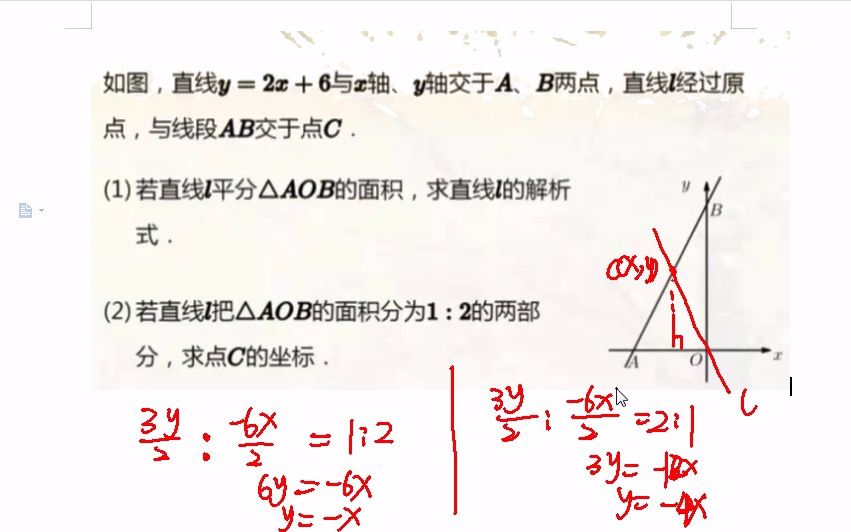 如图，直线y = 2x + 6与x轴、y轴交于A、B两点，直线l经过原
点，与线段AB交于点C．
(1) 若直线l平分△AOB的面积，求直线l的解析
式．
(2) 若直线l把△AOB的面积分为1 : 2的两部
分，求点C的坐标．
y
B
C(x,y)
h
A
O
x
l
3y/2 : -6x/2 = 1:2
6y = -6x
y = -x
3y/2 : -6x/2 = 2:1
3y = -12x
y = -4x